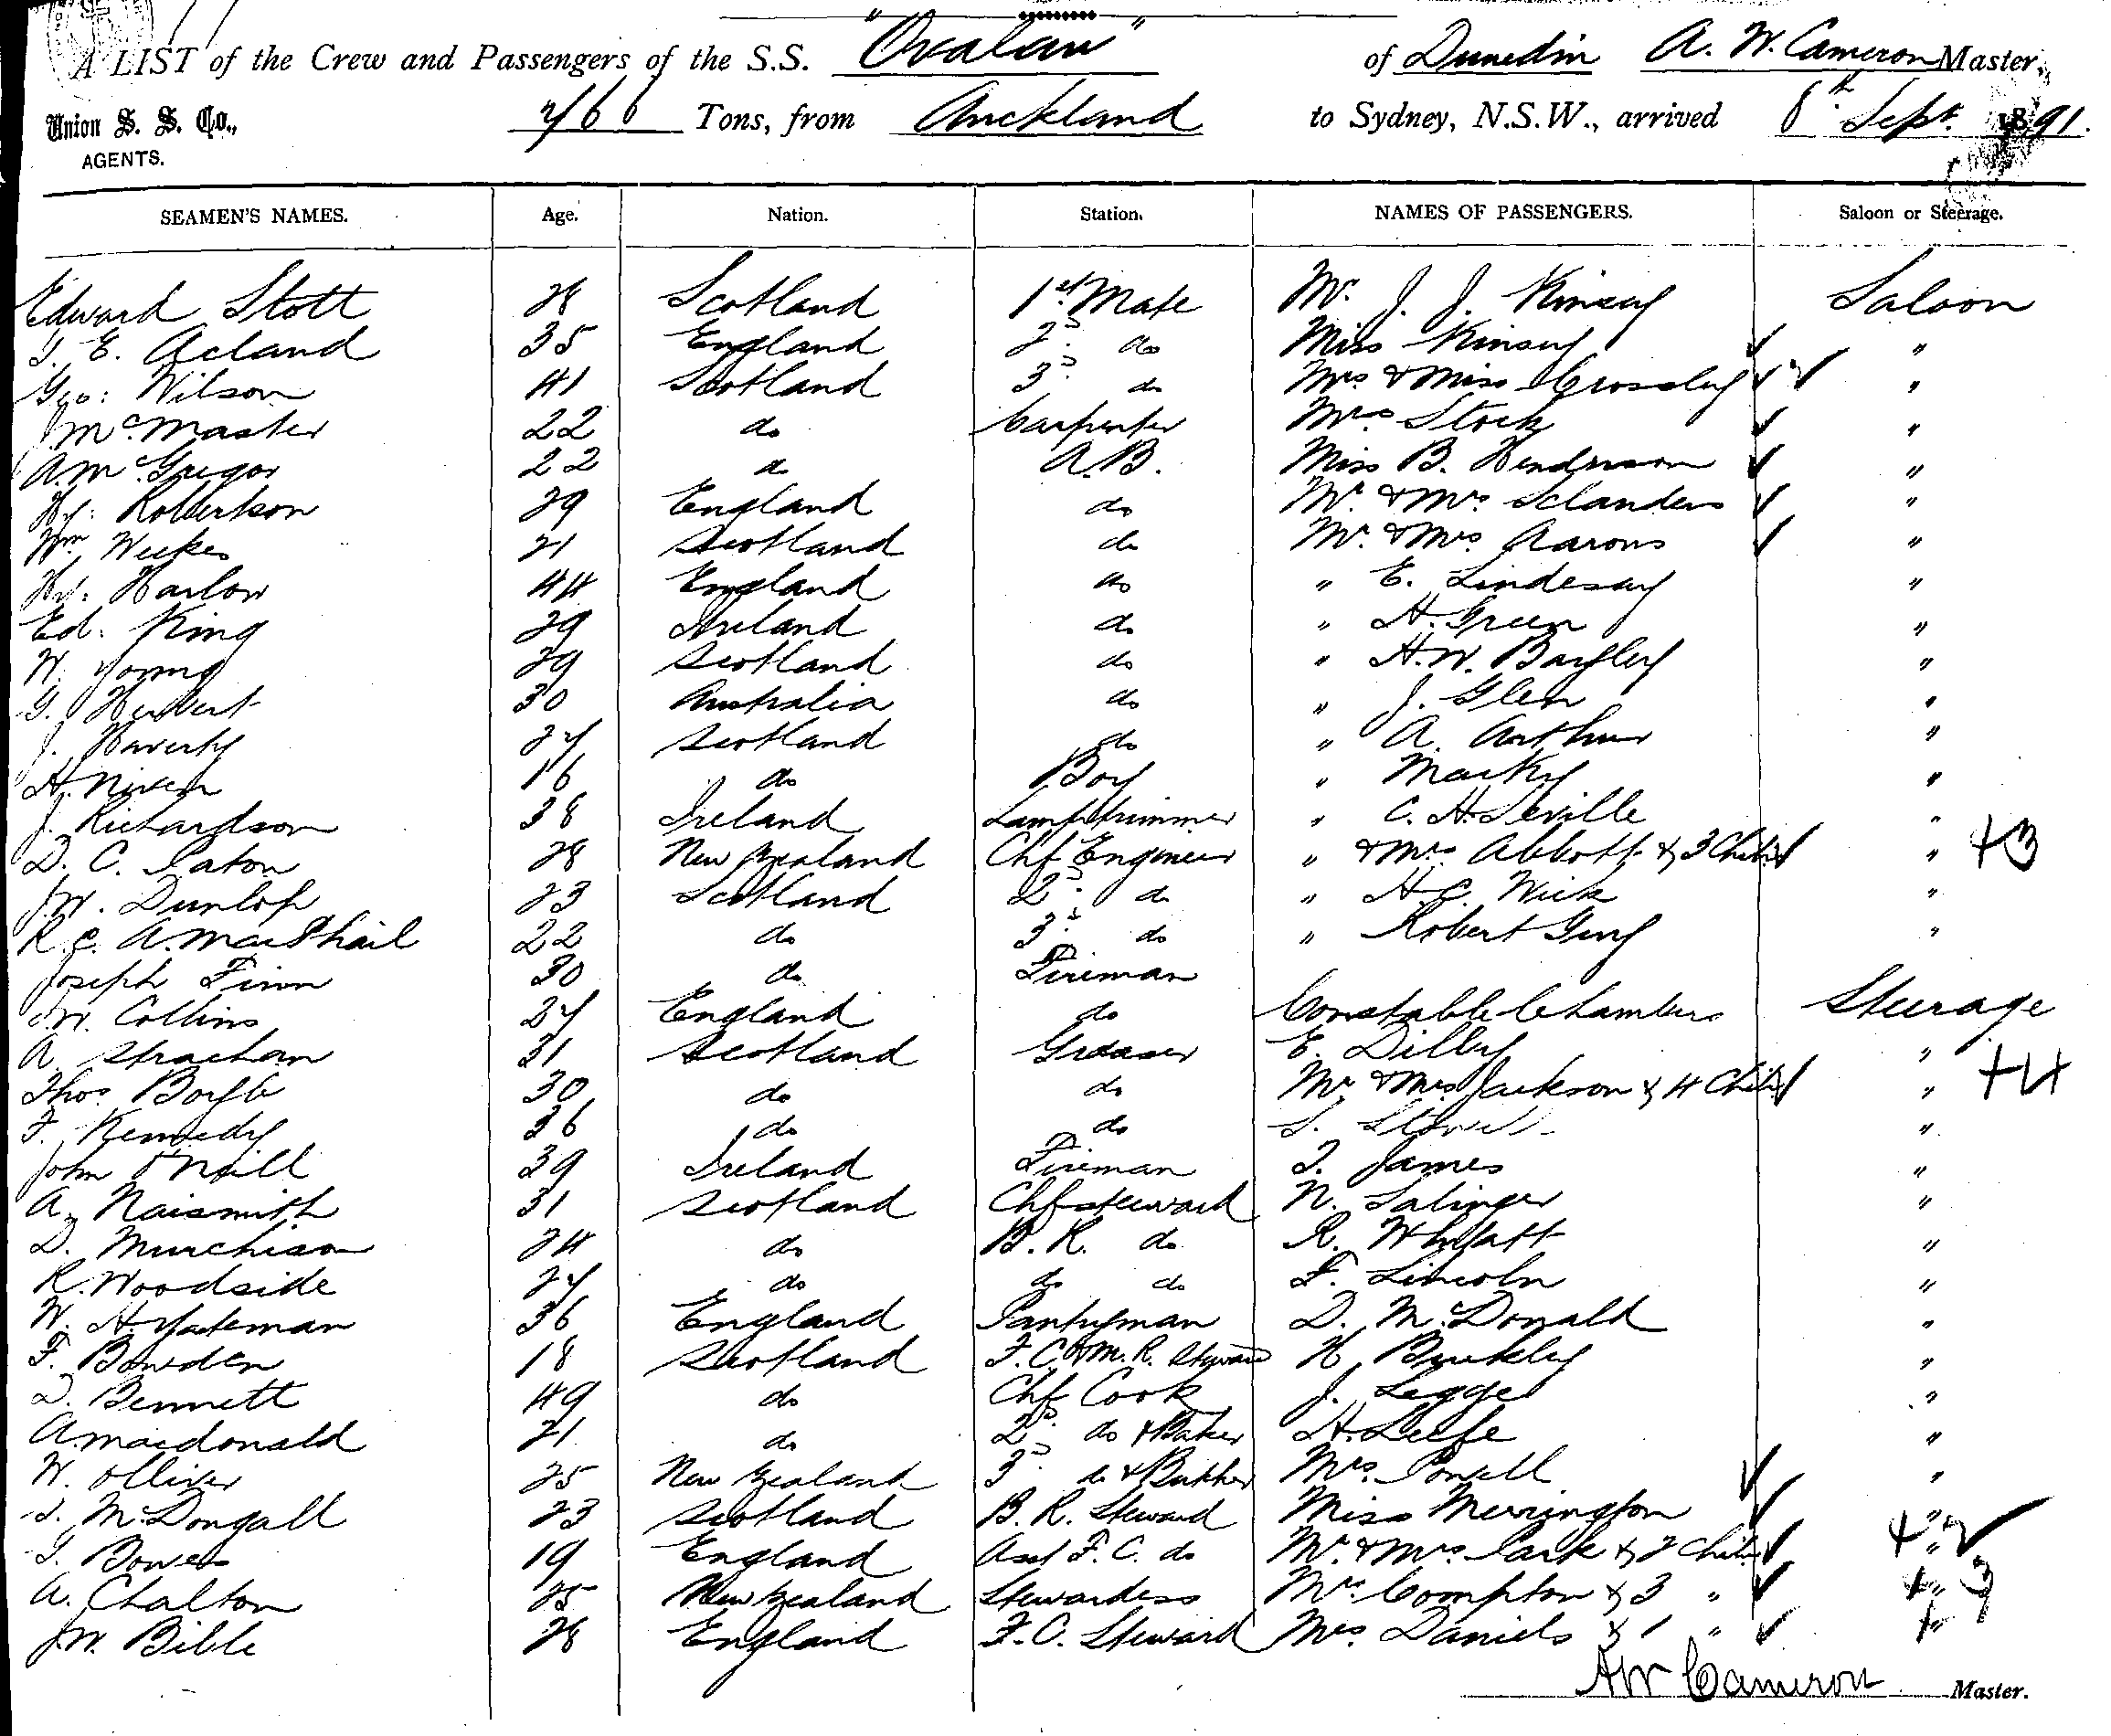 A LIST of the Crew and Passengers of the S.S. "Ovalau" of Dunedin A. W. Cameron Master,
Union S. S. Co., 766 Tons, from Auckland to Sydney, N.S.W., arrived 8th Sept. 1891.
AGENTS.
SEAMEN'S NAMES. Age. Nation. Station. NAMES OF PASSENGERS. Saloon or Steerage.
Edward Stott 28 Scotland 1st Mate Mr. J. J. Kinsey Saloon
E. Acland 35 England 2d do Miss Kinsey "
Geo: Wilson 41 Scotland 3d do Mrs & Miss Crossley "
J McMaster 22 do Carpenter Mrs Stock "
A. McGregor 22 do A.B. Miss B. Henderson "
Hy: Robertson 29 England do Mr. & Mrs. Sclanders "
Wm Weekes 21 Scotland do Mr. & Mrs. Aarons "
Hy: Harlow 44 England do " E. Lindesay "
Ed: King 29 Ireland do " H. Green "
W. Young 29 Scotland do " H. W. Bayley "
G. Herbert 30 Australia do " J. Glen "
J. Haverty 27 Scotland do " A. Arthur "
H. Niven 16 do Boy " Macky "
J. Richardson 38 Ireland Lamptrimmer " C. H. Seville "
D. C. Paton 28 New Zealand Chf Engineer " & Mrs. Abbott & 3 Child " +3
J. W. Dunlop 23 Scotland 2d do " H. C. Wick "
R. C. A. MacPhail 22 do 3d do " Robert Guy "
Joseph Finn 30 do Fireman
W. Collins 27 England do Constable Chambers Steerage
A. Strachan 31 Scotland Greaser E. Dilley "
Thos. Boyle 30 do do Mr. & Mrs Jackson & 4 Child " +4
F. Kennedy 36 do do S. "
John O'Neill 39 Ireland Fireman T. James "
A. Naismith 31 Scotland Chf Steward N. Salinger "
D. Murchison 24 do B. R. do R. Whyatt "
R. Woodside 27 do do do F. Lincoln "
W. H. Yateman 36 England Pantryman D. McDonald "
F. Bowden 18 Scotland F. C. & M. R. Steward H. Buckley "
D. Bennett 49 do Chf Cook J. Legge "
A. Macdonald 21 do 2d do & Baker H. Leefe "
W. Olliver 25 New Zealand 3d do & Butcher Mrs. Powell "
McDougall 23 Scotland B. R. Steward Miss Merrington "
Bowes 19 England Asst F. C. do Mr. & Mrs. Park & 2 Child " +2
A. Chalton 25 New Zealand Stewardess Mrs Compton & 3 " " + 3
J. W. Bible 28 England F. C. Steward Mrs. Daniels & 1 " +
AW Cameron Master.